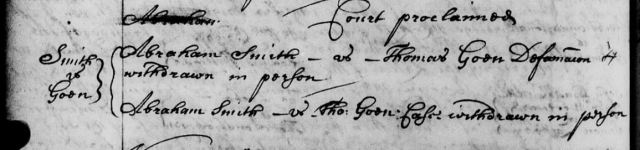 Abraham
Court proclaimed
Smith
vs
Goen
Abraham Smith – vs – Thomas Goen Defamacon
withdrawn in person
Abraham Smith – vs Tho: Goen: Case withdrawn in person